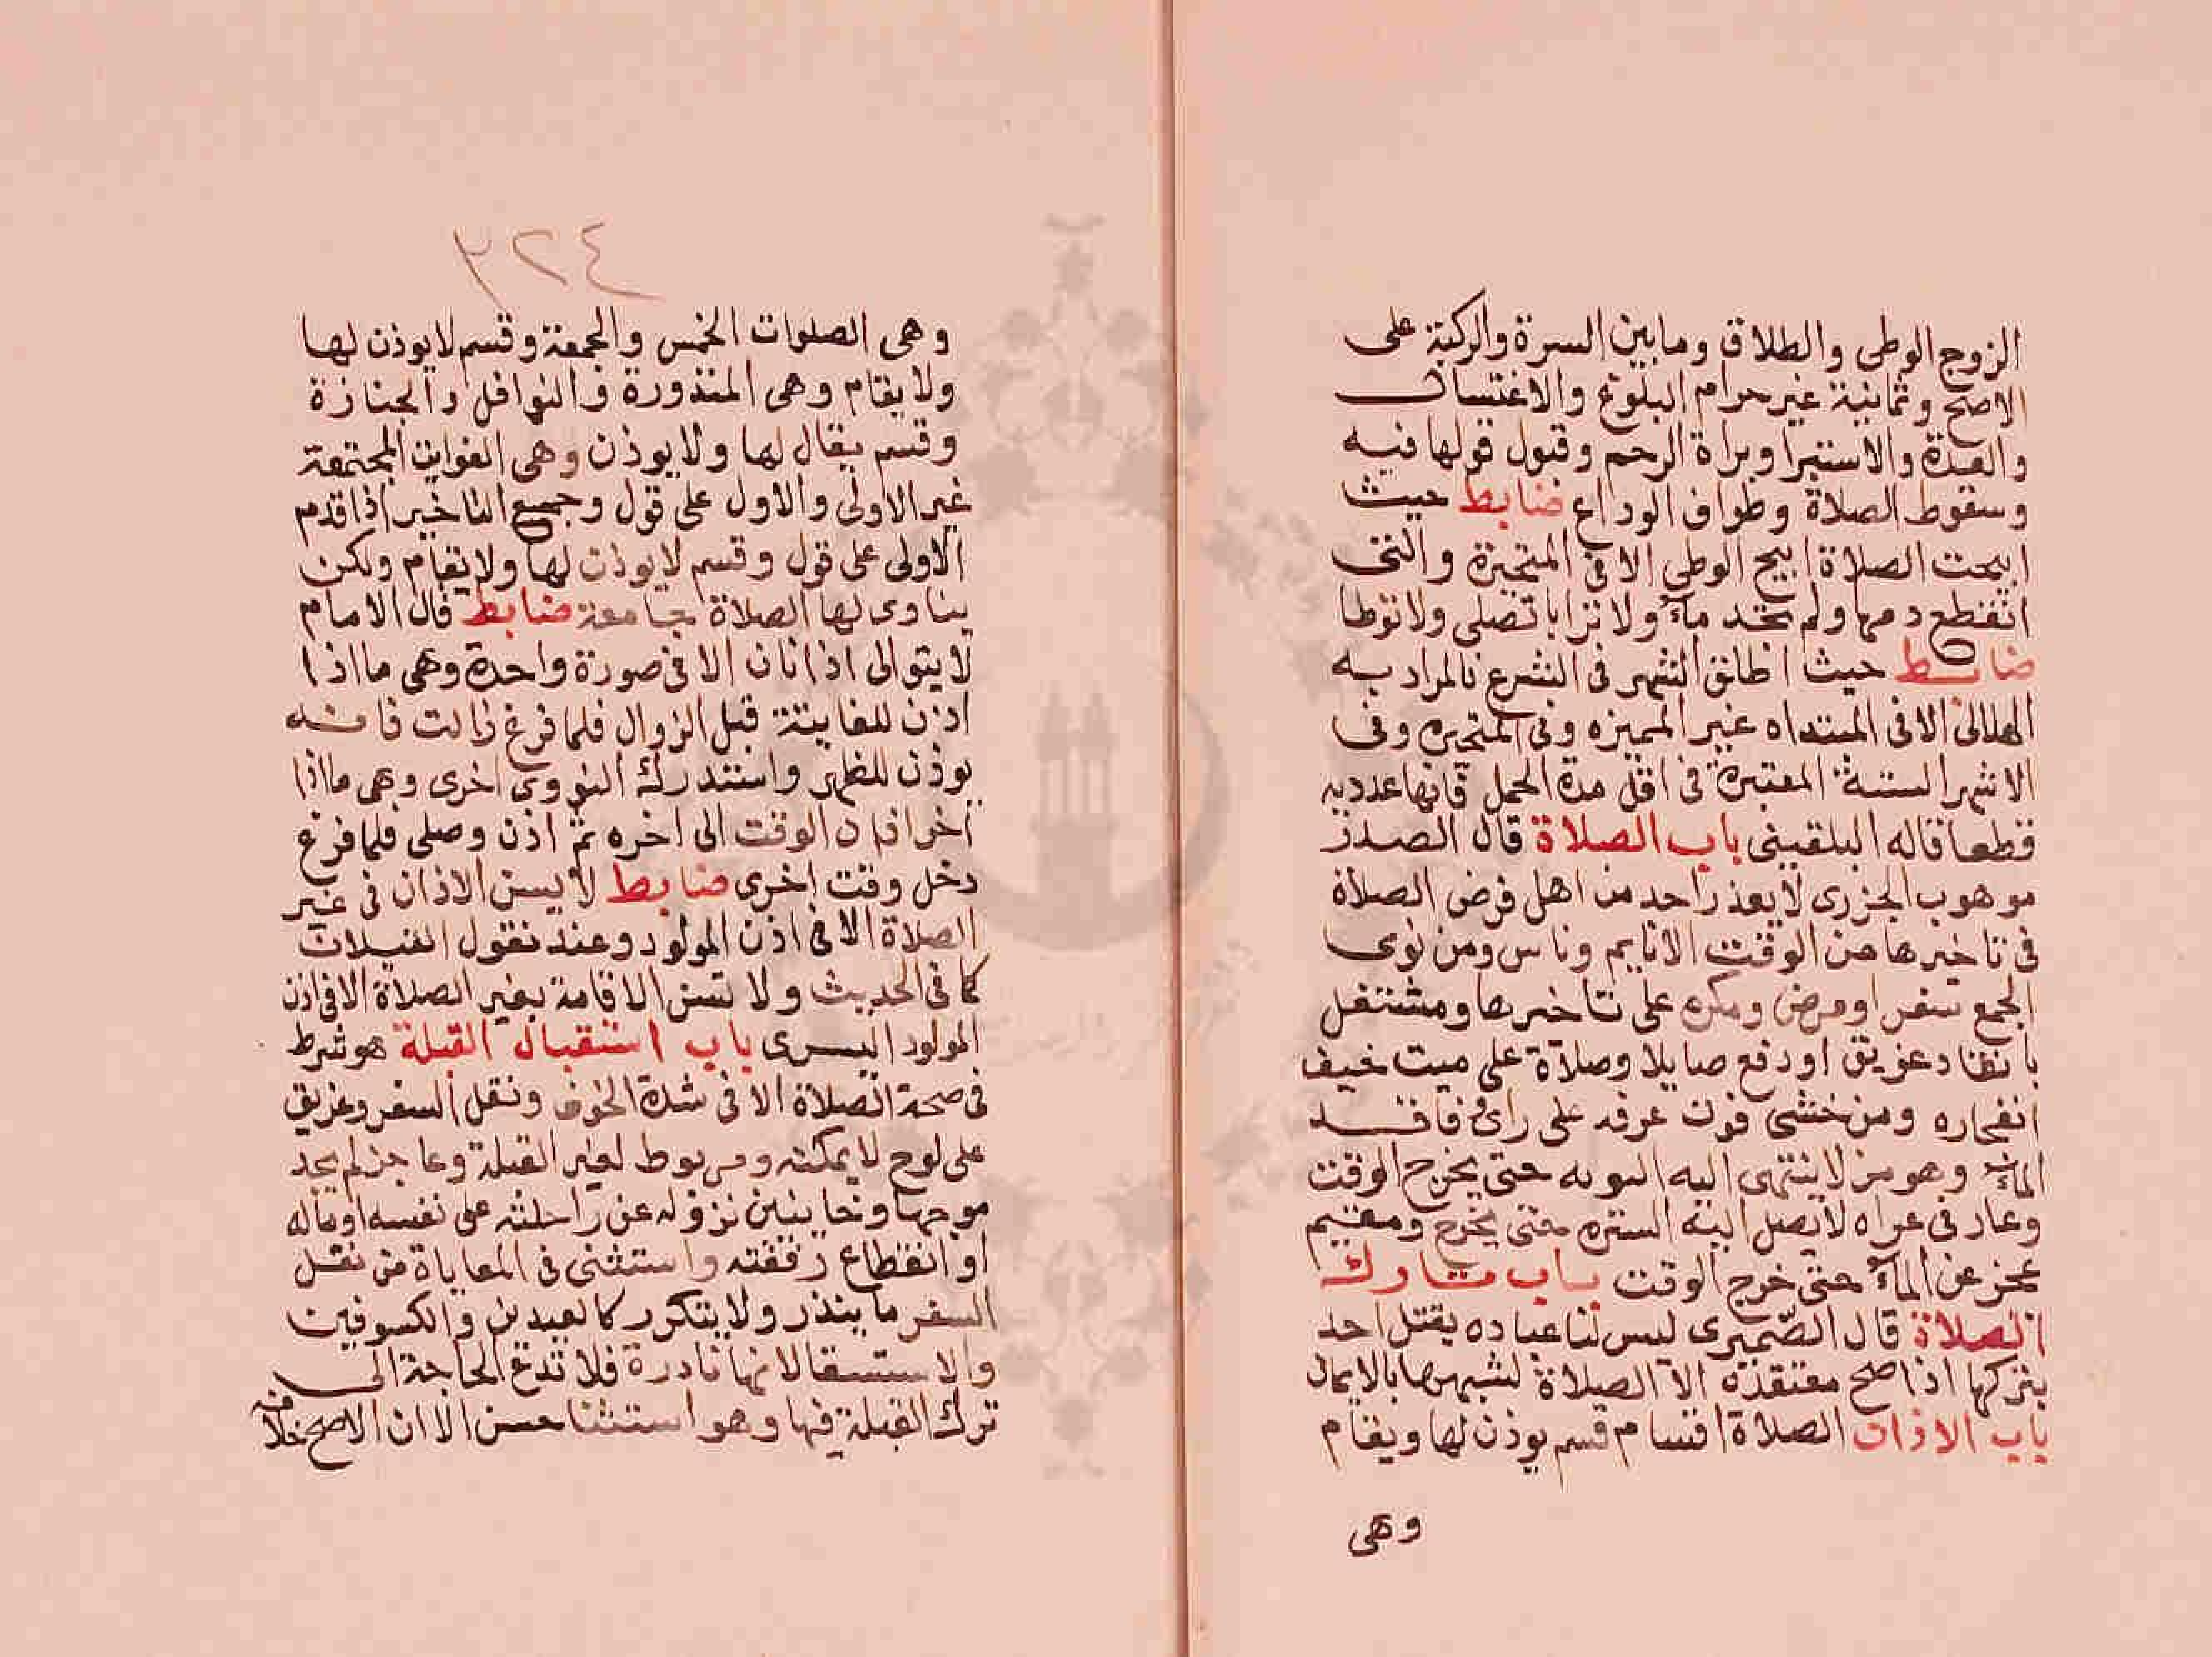 الزوج الوطى والطلاق ومابين السرة والركبة على
الاصح وثمانية غير حرام البلوغ والاغتسال
والعدة والاستبرا وبراة الرحم وقبول قولها فيه
وسقوط الصلاة وطواف الوداع ضابط حيث
ابيحت الصلاة ابيح الوطى الا فى المتحيرة والتى
انقطع دمها ولم تجد ماء ولا ترابا تصلى ولا توطا
ضابط حيث اطلق الشهر فى الشرع فالمراد به
الهلالى الا فى المبتداه غير المميزه وفى المتحيره وفى
الاشهر الستة المعتبرة فى اقل مدة الحمل فانها عدديه
قطعا قاله البلقينى باب الصلاة قال الصدر
موهوب الجزرى لا يعذر احد من اهل فرض الصلاة
فى تاخيرها عن الوقت الا نايم وناس ومن نوى
الجمع سفر او مرض ومكره على تاخيرها ومشتغل
بانقاد غريق او دفع صايلا وصلاة على ميت خيف
انفجاره ومن خشى فوت عرفه على راى وفاقد
الماء وهو من لا ينتهى اليه النوبه حتى يخرج الوقت
وعار فى عراه لا يصل اليه الستره حتى يخرج ومقيم
عجز عن الماء حتى خرج الوقت باب تارك
الصلاة قال الصميرى ليس لنا عباده يقتل احد
بتركها اذا صح معتقده الا الصلاة لشبهها بالايمان
باب الاذان الصلاة اقسام قسم يوذن لها ويقام
وهى
٣٢٤
وهى الصلوات الخمس والجمعة وقسم لا يوذن لها
ولا يقام وهى المنذورة والنوافل والجنازة
وقسم يقال لها ولا يوذن وهى الفوايت المجتمعة
غير الاولى والاول على قول وجميع التاخير اذا قدم
الاولى على قول وقسم لا يوذن لها ولا يقام ولكن
ينادى لها الصلاة جامعة ضابط قال الامام
لا يتوالى اذانان الا فى صورة واحدة وهى ما اذا
اذن للفايتة قبل الزوال فلما فرغ زالت فانه
يوذن للظهر واستدرك النووى اخرى وهى ما اذا
اخر اذان الوقت الى اخره ثم اذن وصلى فلما فرغ
دخل وقت اخرى ضابط لا يسن الاذان فى غير
الصلاة الا فى اذن المولود وعند تغول الغيلان
كما فى الحديث ولا تسن الاقامة بغير الصلاة الا فى اذن
المولود اليسرى باب استقبال القبلة هو شرط
فى صحة الصلاة الا فى شدة الخوف ونفل السفر وغريق
على لوح لا يمكنه ومربوط لغير القبلة وعاجز لم يجد
موجها وخايف من نزوله عن راحلته على نفسه او ماله
او انقطاع رفقته واستثنى فى المعاياة من نفل
السفر ما يندر ولا يتكرر كالعيدين والكسوفين
والاستسقا لانها نادرة فلا تدع الحاجة الى
ترك القبلة فيها وهو استثنا حسن الا ان الاصح خلافه